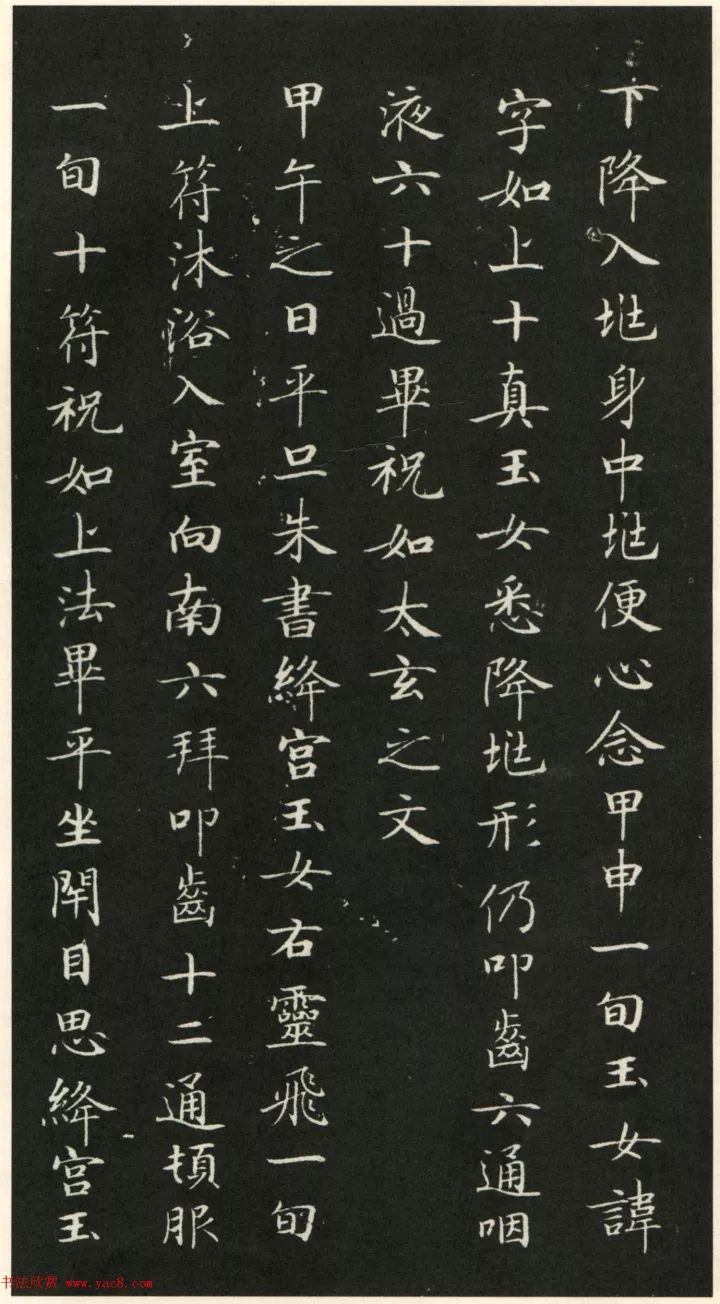 下降入𡊮身中𡊮便心念甲申一旬玉女諱
字如上十真玉女悉降𡊮形仍叩齒六通咽
液六十過畢祝如太玄之文
甲午之日平旦朱書絳宫玉女右靈飛一旬
上符沐浴入室向南六拜叩齒十二通頓服
一旬十符祝如上法畢平坐閇目思絳宫玉
书法欣赏 www.yac8.com